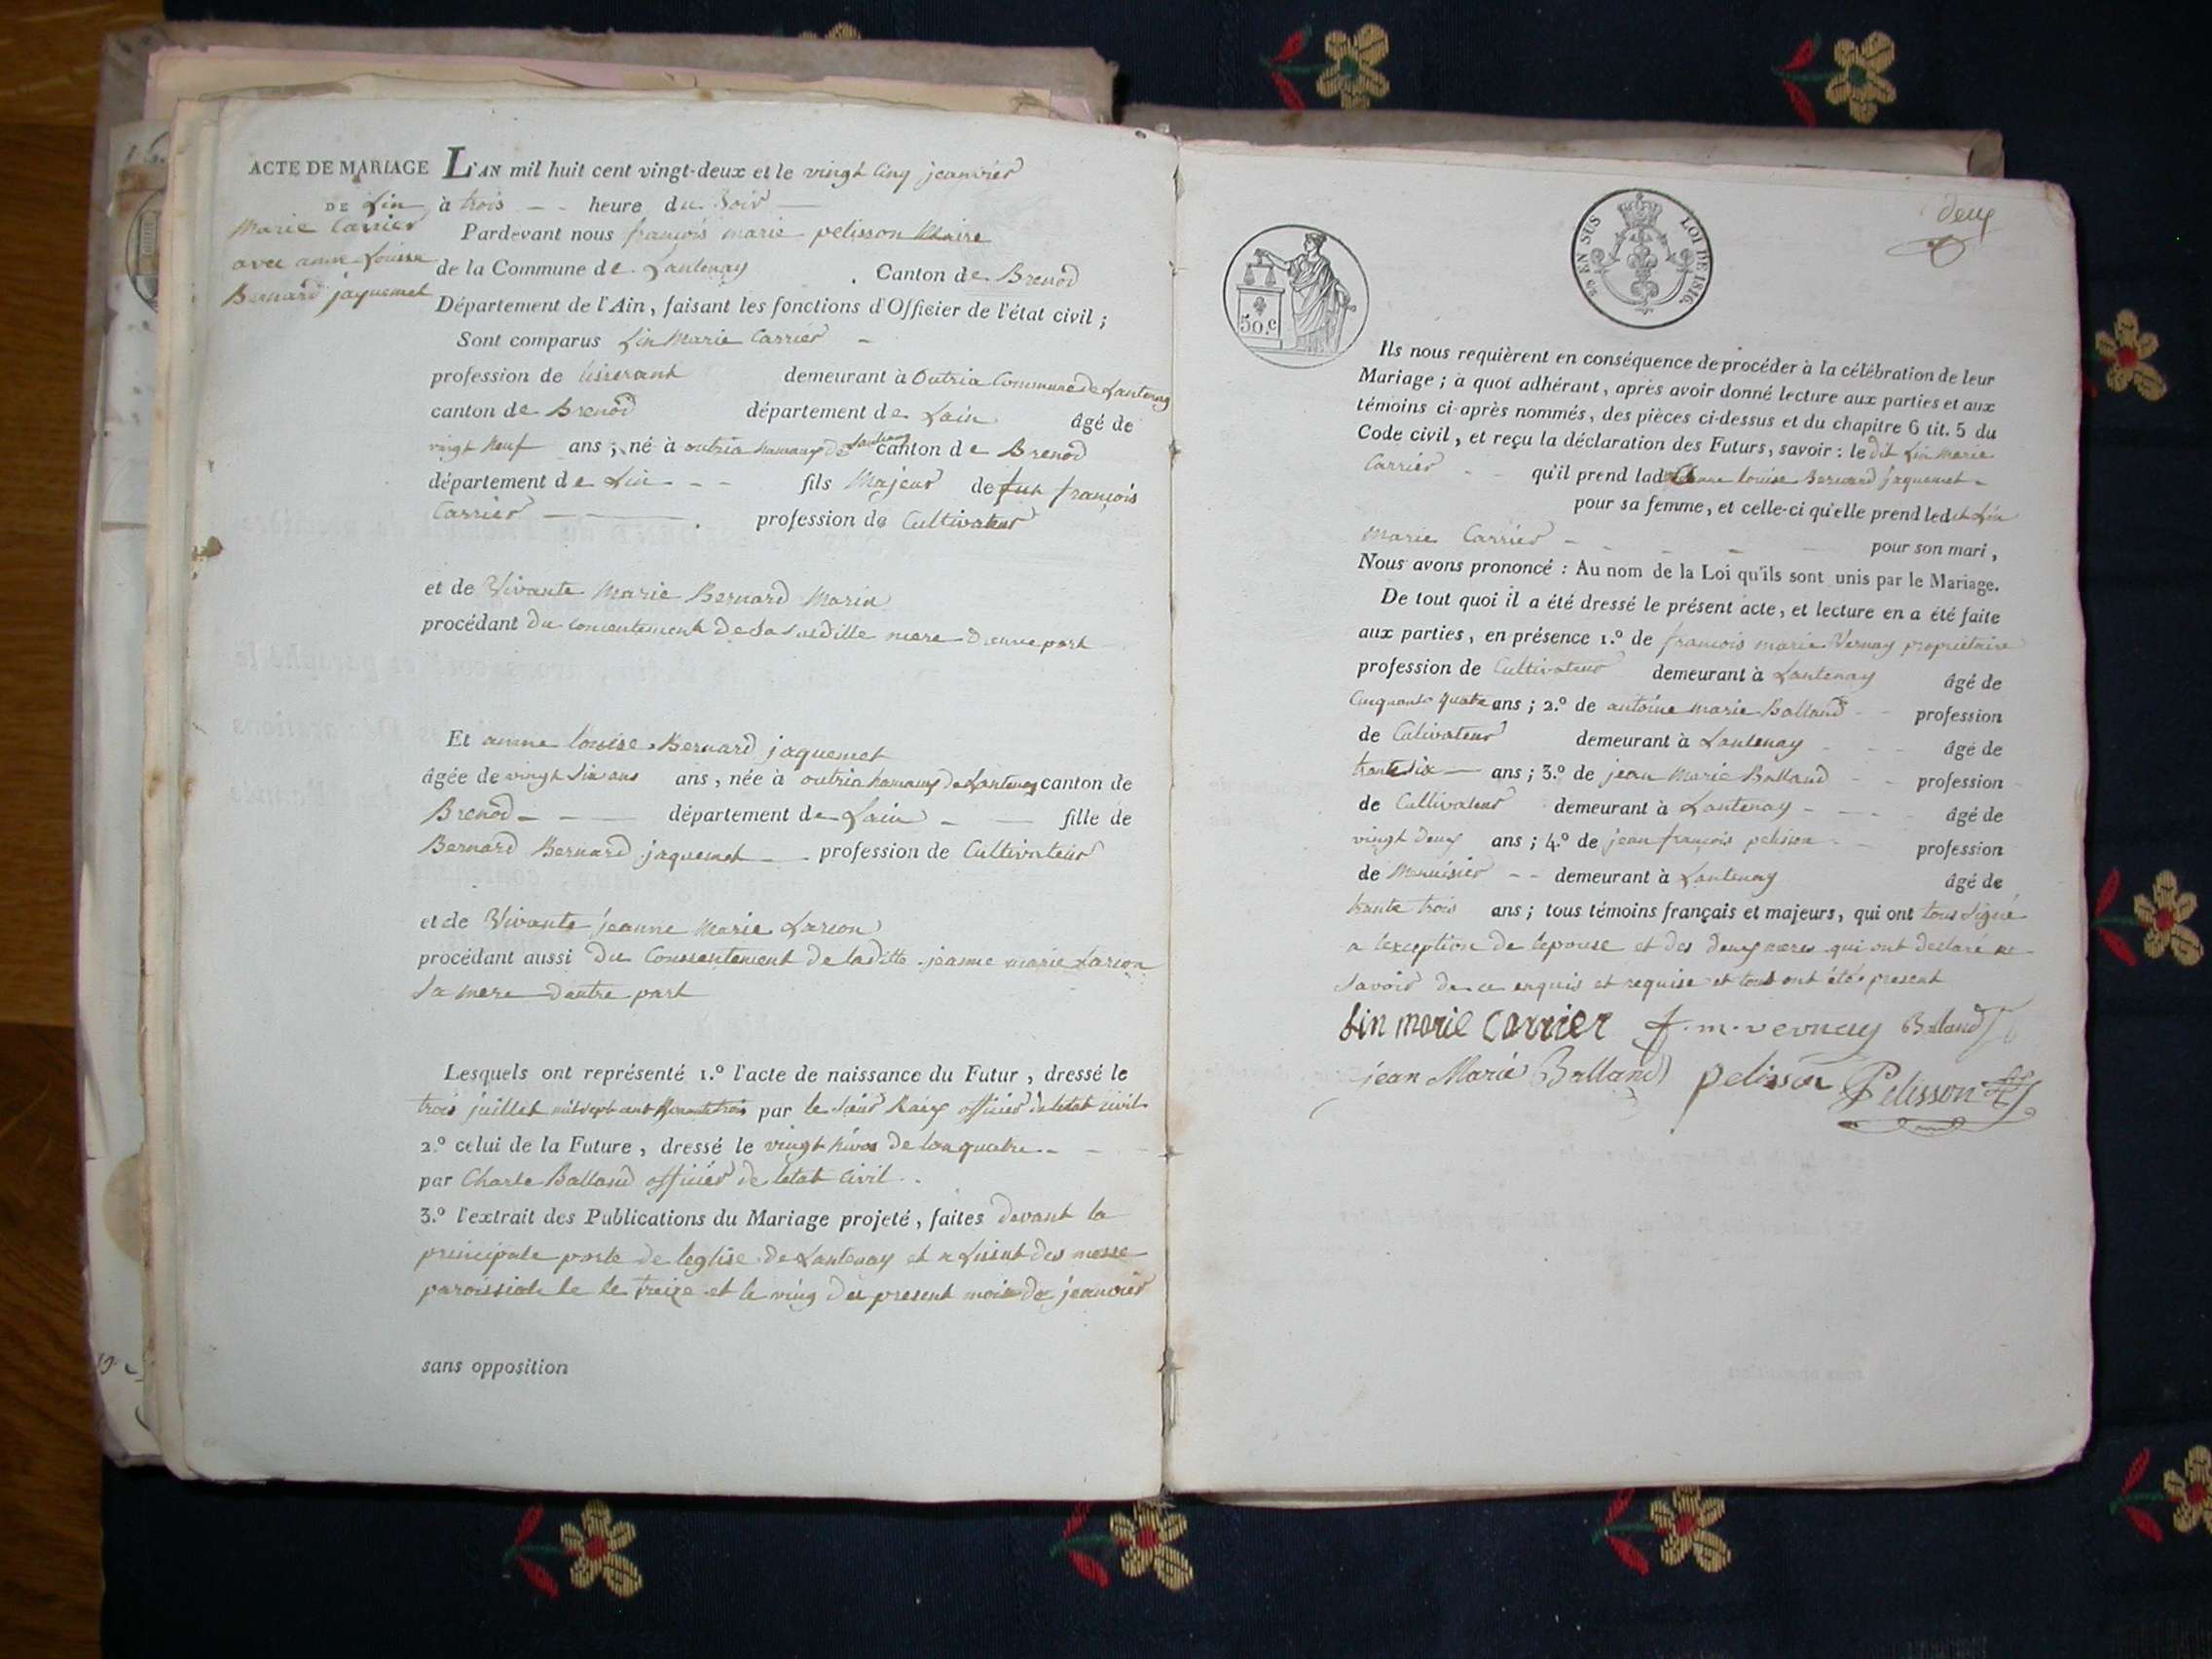 ACTE DE MARIAGE
DE Lin
Marie Carrier
avec anne Louise
Bernard jaquemet
L'AN mil huit cent vingt-deux et le vingt cinq jeanvier
à trois heure du Soir
Pardevant nous françois marie pelisson Maire
de la Commune de Lantenay Canton de Brenod
Département de l'Ain, faisant les fonctions d'Officier de l'état civil ;
Sont comparus Lin Marie Carrier
profession de tisserant demeurant à Outria Commune de Lantenay
canton de Brenod département de Lain âgé de
vingt neuf ans ; né à outria hamaux de Lantenay canton de Brenod
département de Lin fils Majeur de feu françois
Carrier profession de Cultivateur
et de Vivante Marie Bernard Marin
procédant du consentement de sa susditte mere d'une part
Et anne louise Bernard jaquemet
âgée de vingt six ans ans, née à outria hamaux de Lantenay canton de
Brenod département de Lain fille de
Bernard Bernard jaquemet profession de Cultivateur
et de Vivante jeanne Marie Larcon
procédant aussi du Consentement de laditte jeanne marie Larcon
sa mere dautre part
Lesquels ont représenté 1.º l'acte de naissance du Futur, dressé le
trois juillet mil sept cent par le sieur officier de letat civil
2.º celui de la Future, dressé le vingt nivos de lan quatre
par Charle Balland officier de letat civil
3.º l'extrait des Publications du Mariage projeté, faites devant la
principale porte de leglise de Lantenay et a Lissut des messe
paroissiale le treize et le ving du present mois de jeanvier
sans opposition
deux
50.c
EN SUS LOI DE 1816.
Ils nous requièrent en conséquence de procéder à la célébration de leur
Mariage ; à quoi adhérant, après avoir donné lecture aux parties et aux
témoins ci-après nommés, des pièces ci-dessus et du chapitre 6 tit. 5 du
Code civil, et reçu la déclaration des Futurs, savoir : le dit Lin Marie
Carrier qu'il prend lad anne louise Bernard jaquemet
pour sa femme, et celle-ci qu'elle prend ledit Lin
Marie Carrier pour son mari,
Nous avons prononcé : Au nom de la Loi qu'ils sont unis par le Mariage.
De tout quoi il a été dressé le présent acte, et lecture en a été faite
aux parties, en présence 1.º de françois marie Vernay propriétaire
profession de Cultivateur demeurant à Lantenay âgé de
Cinquante quatre ans ; 2.º de antoine marie Balland profession
de Cultivateur demeurant à Lantenay âgé de
trante six ans ; 3.º de jean Marie Balland profession
de Cultivateur demeurant à Lantenay âgé de
vingt deux ans ; 4.º de jean françois pelisson profession
de Menuisier demeurant à Lantenay âgé de
trante trois ans ; tous témoins français et majeurs, qui ont tous signé
a lexception de lepouse et des deux meres qui ont declaré ne
savoir de ce enquis et requise et tous ont été present
Lin marie Carrier f. m. vernay Balland
jean Marie Balland pelisson Pelisson